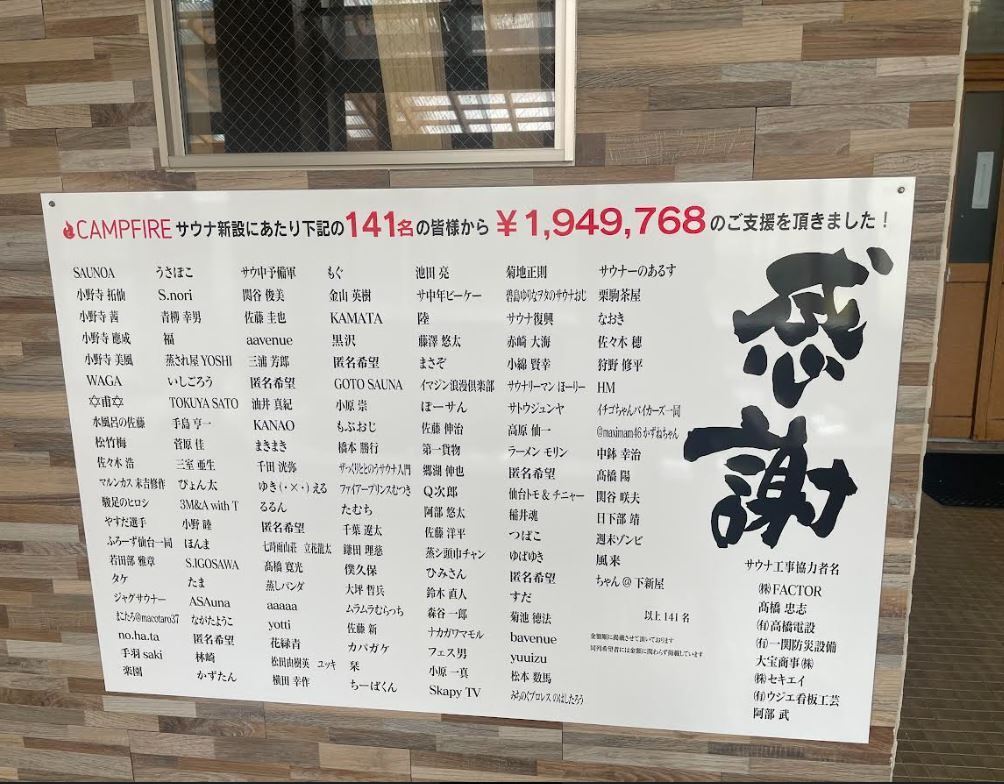 CAMPFIRE サウナ新設にあたり下記の141名の皆様から ¥1,949,768 のご支援を頂きました!
感謝
SAUNOA
小野寺 拓恤
小野寺 茜
小野寺 應成
小野寺 美風
WAGA
✡甫✡
水風呂の佐藤
松竹梅
佐々木 浩
マルンカス 末吉修作
駿足のヒロシ
やすだ選手
ふろーず仙台一同
若田部 雅章
タケ
ジャグサウナー
まこたろ@macotaro37
no.ha.ta
手羽 saki
楽園
うさぽこ
S.nori
青柳 幸男
福
蒸され屋 YOSHI
いしごろう
TOKUYA SATO
手島 亨一
菅原 佳
三室 亜生
ぴょん太
3M&A with T
小野 睦
ほんま
S.IGOSAWA
たま
ASAuna
ながたようこ
匿名希望
林崎
かずたん
サウ中予備軍
関谷 俊美
佐藤 圭也
aavenue
三浦 芳郎
匿名希望
油井 真紀
KANAO
まきまき
千田 洸弥
ゆき(・×・)える
るるん
匿名希望
七時雨山荘 立花龍太
髙橋 寛光
蒸しパンダ
aaaaa
yotti
花緑青
松田由樹英 ユッキ
横田 幸作
もぐ
金山 英樹
KAMATA
黒沢
匿名希望
GOTO SAUNA
小原 崇
もぶおじ
橋本 勝行
ざっくりととのうサウナ入門
ファイアープリンスむつき
たむち
千葉 遼太
鎌田 理慈
僕久保
大坪 哲兵
ムラムラむらっち
佐藤 新
カバガケ
栞
ちーぱくん
池田 亮
サ中年ビーケー
陸
藤澤 悠太
まさぞ
イマジン浪漫倶楽部
ぽーサん
佐藤 伸治
第一貨物
郷湖 伸也
Q次郎
阿部 悠太
佐藤 洋平
蒸シ頭巾チャン
ひみさん
鈴木 直人
森谷 一郎
ナカガワマモル
フェス男
小原 一真
Skapy TV
菊地正則
碧島ゆりなヲタのサウナおじ
サウナ復興
赤崎 大海
小綿 賢幸
サウナリーマン ほーリー
サトウジュンヤ
高原 仙一
ラーメン モリン
匿名希望
仙台トモ & チニャー
稲井魂
つばこ
ゆばゆき
匿名希望
すだ
菊池 徳法
bavenue
yuuizu
松本 数馬
みちのくプロレス のはしたろう
サウナーのあるす
栗駒茶屋
なおき
佐々木 穂
狩野 修平
HM
イチゴちゃんバイカーズ一同
@maximam46 かずねちゃん
中鉢 幸治
髙橋 陽
関谷 咲夫
日下部 靖
週末ゾンビ
風来
ちゃん @ 下新屋
以上 141 名
金額順に掲載させて頂いております
同列希望者には金額に関わらず掲載しています
サウナ工事協力者名
㈱FACTOR
髙橋 忠志
㈲髙橋電設
㈲一関防災設備
大宝商事㈱
㈱セキエイ
㈲ウジエ看板工芸
阿部 武